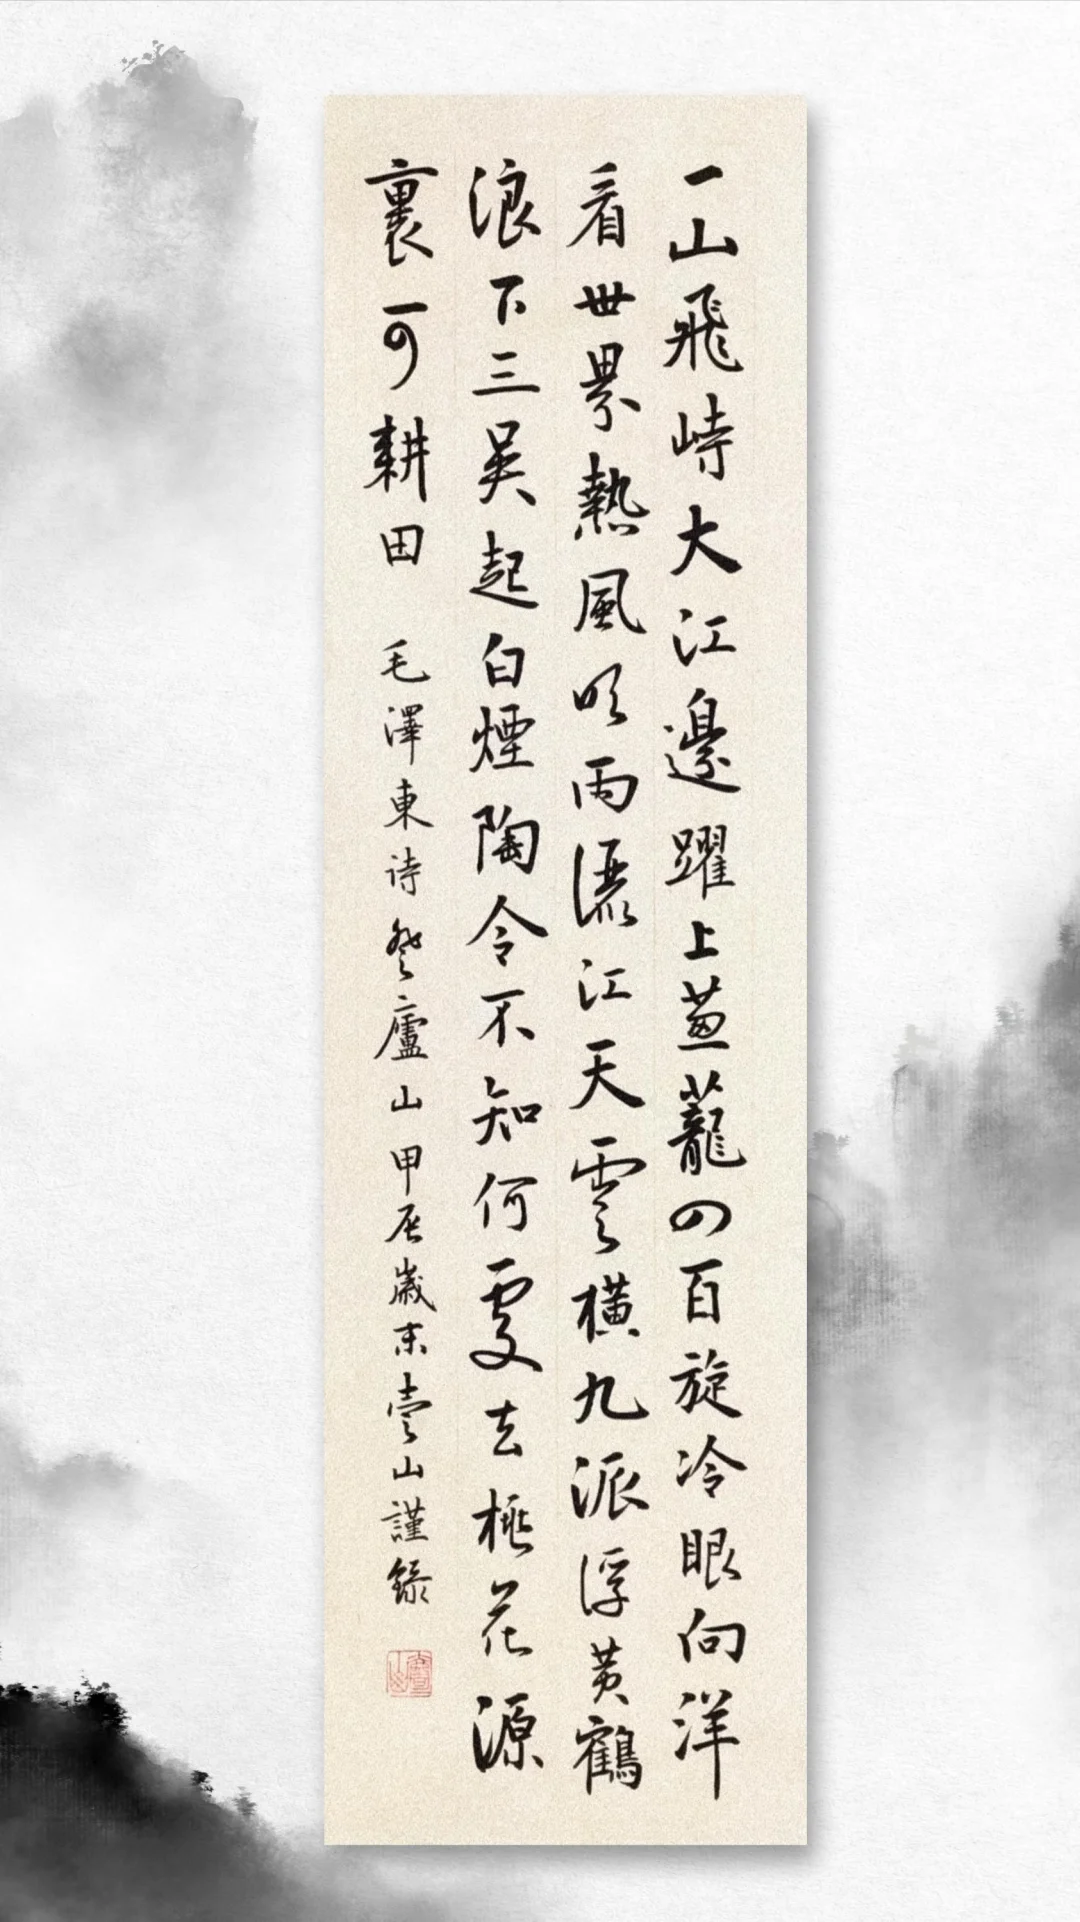 一山飛峙大江邊躍上葱蘢四百旋冷眼向洋
看世界熱風吹雨灑江天雲橫九派浮黃鶴
浪下三吳起白煙陶令不知何處去桃花源
裏可耕田
毛澤東诗登廬山甲辰歲末壹山謹錄
壹山